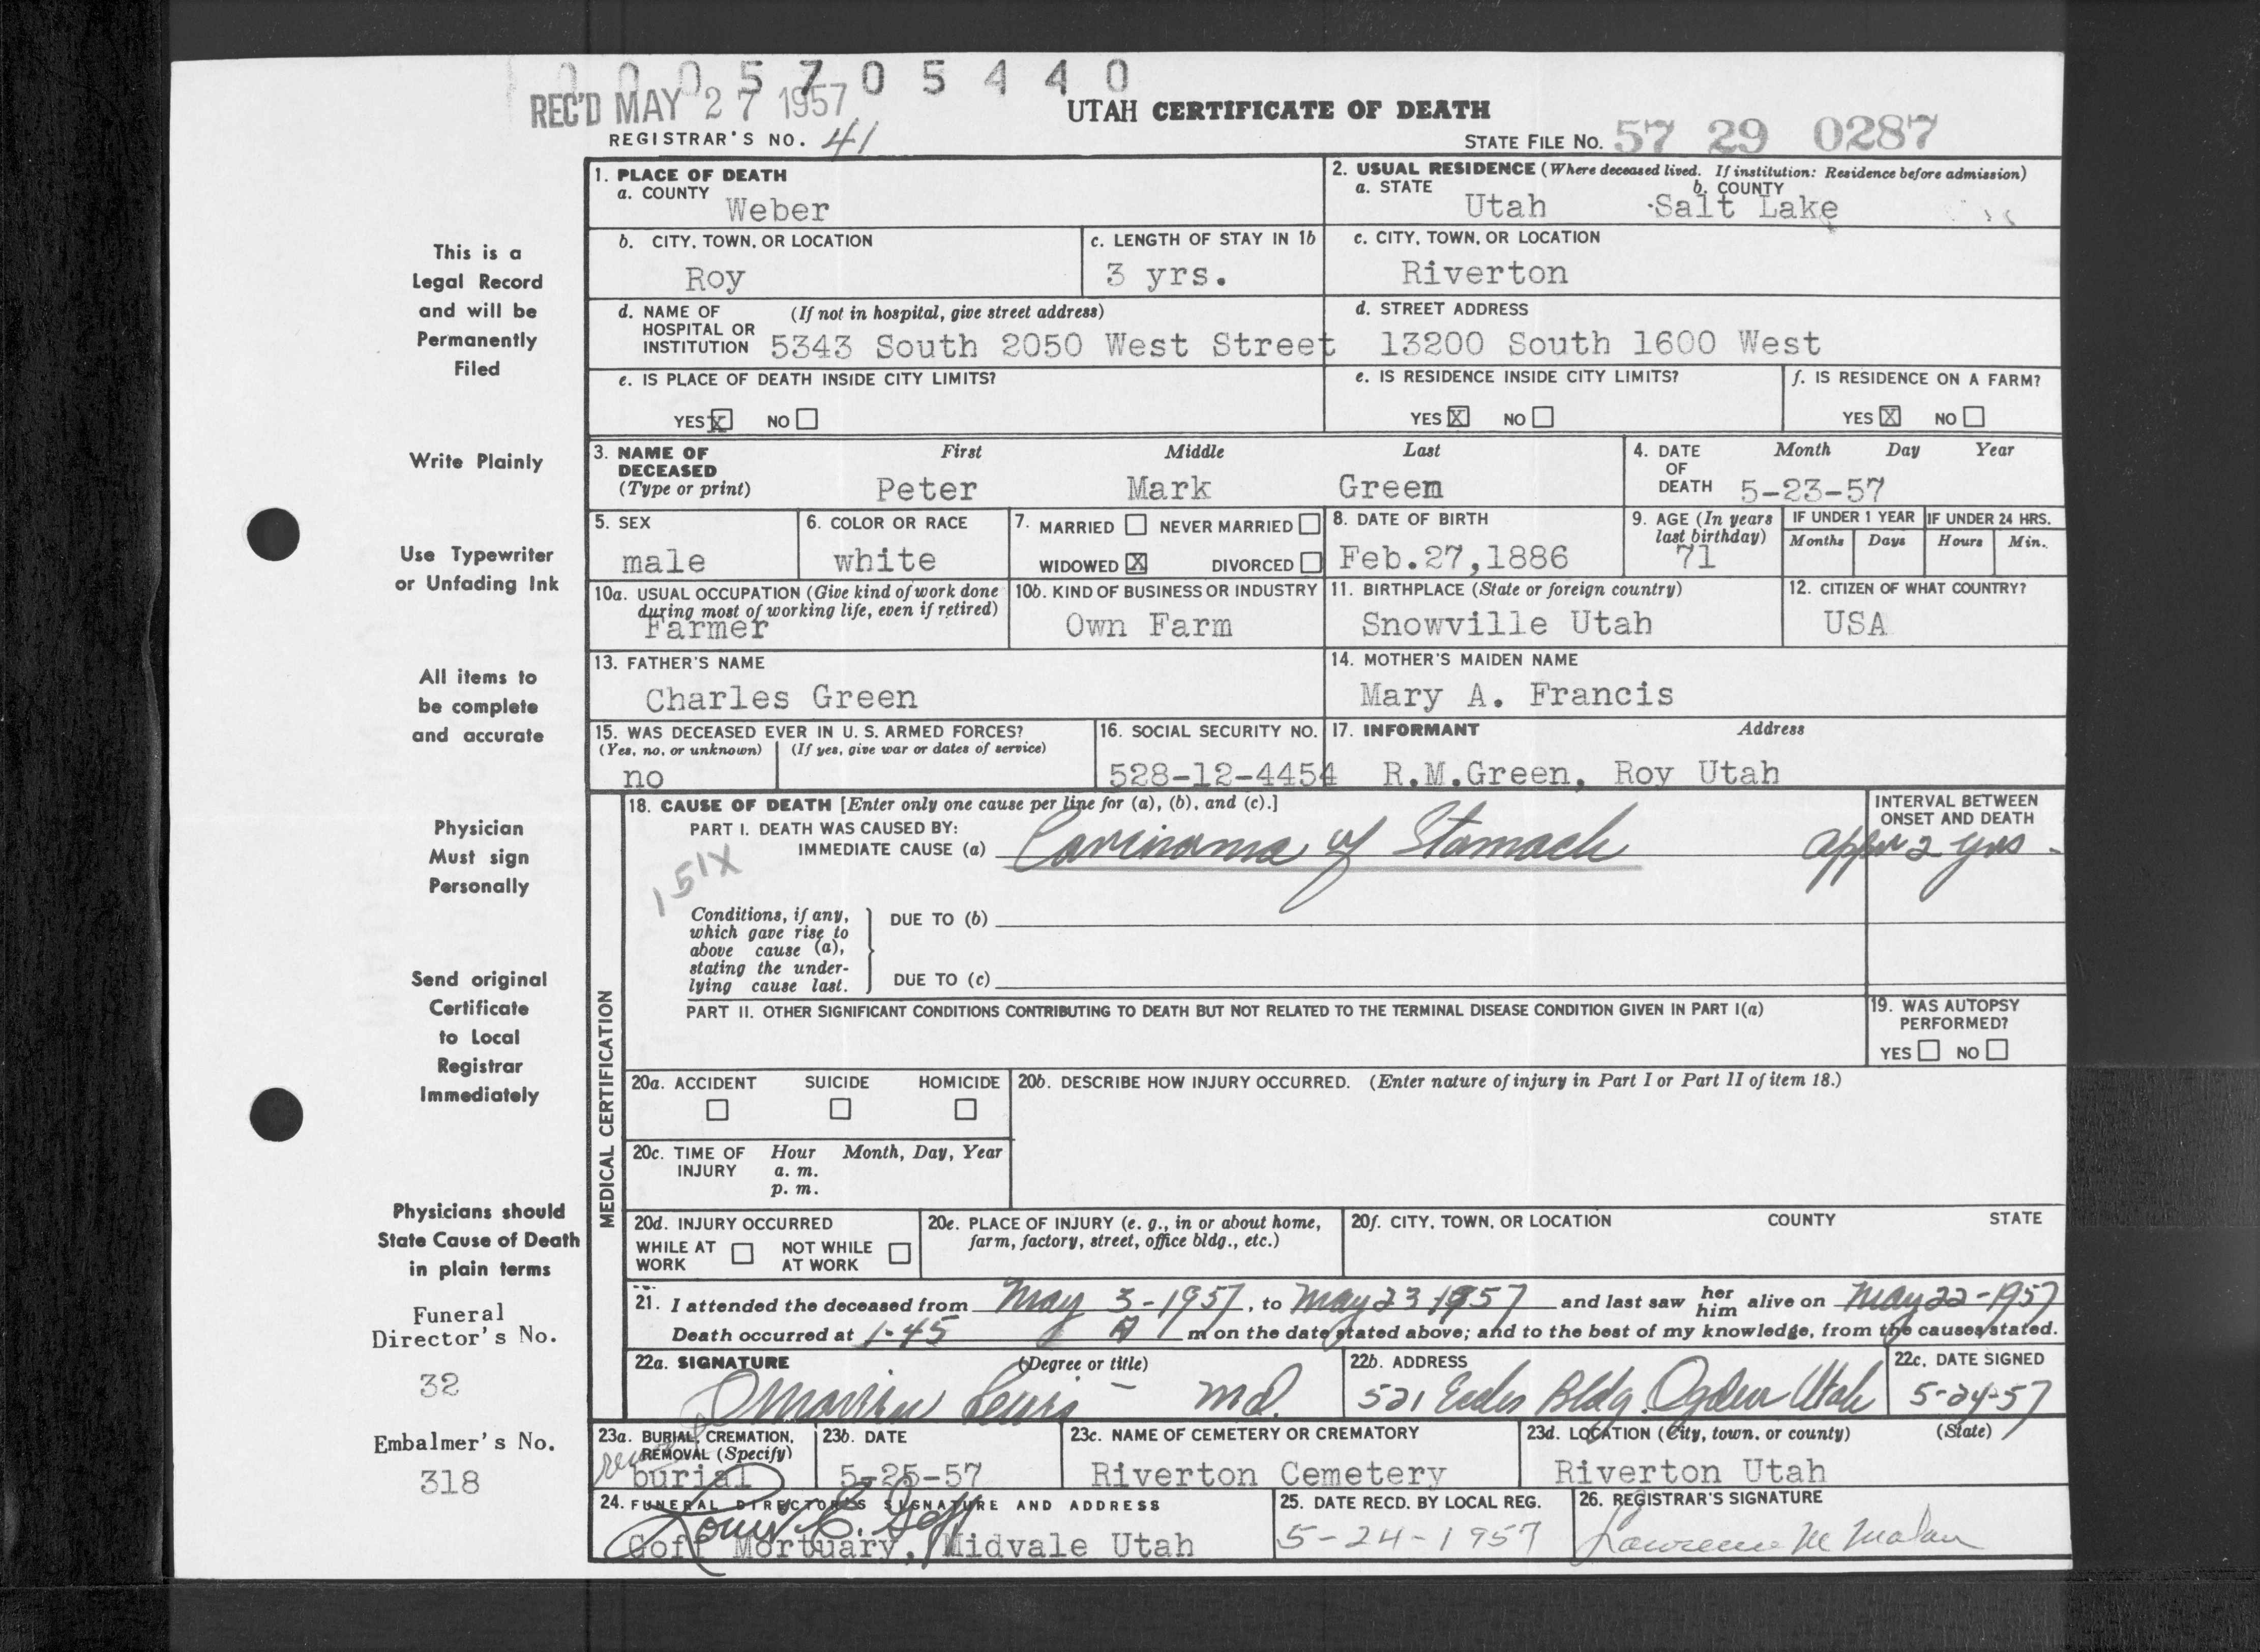 0005705440
REC'D MAY 27 1957
UTAH CERTIFICATE OF DEATH
REGISTRAR'S NO. 41
STATE FILE NO. 57 29 0287
This is a
Legal Record
and will be
Permanently
Filed
Write Plainly
Use Typewriter
or Unfading Ink
All items to
be complete
and accurate
Physician
Must sign
Personally
Send original
Certificate
to Local
Registrar
Immediately
Physicians should
State Cause of Death
in plain terms
Funeral
Director's No.
32
Embalmer's No.
318
1. PLACE OF DEATH
a. COUNTY
Weber
2. USUAL RESIDENCE (Where deceased lived. If institution: Residence before admission)
a. STATE b. COUNTY
Utah Salt Lake
b. CITY, TOWN, OR LOCATION
Roy
c. LENGTH OF STAY IN 1b
3 yrs.
c. CITY, TOWN, OR LOCATION
Riverton
d. NAME OF (If not in hospital, give street address)
HOSPITAL OR
INSTITUTION 5343 South 2050 West Street
d. STREET ADDRESS
13200 South 1600 West
e. IS PLACE OF DEATH INSIDE CITY LIMITS?
YES X NO
e. IS RESIDENCE INSIDE CITY LIMITS?
YES X NO
f. IS RESIDENCE ON A FARM?
YES X NO
3. NAME OF First Middle Last
DECEASED
(Type or print) Peter Mark Green
4. DATE Month Day Year
OF
DEATH 5-23-57
5. SEX
male
6. COLOR OR RACE
white
7. MARRIED NEVER MARRIED
WIDOWED X DIVORCED
8. DATE OF BIRTH
Feb.27,1886
9. AGE (In years
last birthday)
71
IF UNDER 1 YEAR IF UNDER 24 HRS.
Months Days Hours Min.
10a. USUAL OCCUPATION (Give kind of work done
during most of working life, even if retired)
Farmer
10b. KIND OF BUSINESS OR INDUSTRY
Own Farm
11. BIRTHPLACE (State or foreign country)
Snowville Utah
12. CITIZEN OF WHAT COUNTRY?
USA
13. FATHER'S NAME
Charles Green
14. MOTHER'S MAIDEN NAME
Mary A. Francis
15. WAS DECEASED EVER IN U. S. ARMED FORCES?
(Yes, no, or unknown) (If yes, give war or dates of service)
no
16. SOCIAL SECURITY NO.
528-12-4454
17. INFORMANT Address
R.M.Green, Roy Utah
MEDICAL CERTIFICATION
18. CAUSE OF DEATH [Enter only one cause per line for (a), (b), and (c).]
PART I. DEATH WAS CAUSED BY:
IMMEDIATE CAUSE (a) Carcinoma of Stomach
INTERVAL BETWEEN
ONSET AND DEATH
appr 2 yrs -
151X
Conditions, if any,
which gave rise to
above cause (a),
stating the under-
lying cause last.
DUE TO (b)
DUE TO (c)
PART II. OTHER SIGNIFICANT CONDITIONS CONTRIBUTING TO DEATH BUT NOT RELATED TO THE TERMINAL DISEASE CONDITION GIVEN IN PART I(a)
19. WAS AUTOPSY
PERFORMED?
YES NO
20a. ACCIDENT SUICIDE HOMICIDE
20b. DESCRIBE HOW INJURY OCCURRED. (Enter nature of injury in Part I or Part II of item 18.)
20c. TIME OF Hour Month, Day, Year
INJURY a. m.
p. m.
20d. INJURY OCCURRED
WHILE AT NOT WHILE
WORK AT WORK
20e. PLACE OF INJURY (e. g., in or about home,
farm, factory, street, office bldg., etc.)
20f. CITY, TOWN, OR LOCATION COUNTY STATE
21. I attended the deceased from May 3-1957, to May 23 1957 and last saw her him alive on May 22-1957
Death occurred at 1-45 A m on the date stated above; and to the best of my knowledge, from the causes stated.
22a. SIGNATURE (Degree or title)
O Marvin Lewis - Md.
22b. ADDRESS
521 Eccles Bldg. Ogden Utah
22c. DATE SIGNED
5-24-57
23a. BURIAL, CREMATION,
REMOVAL (Specify)
removal
burial
23b. DATE
5-25-57
23c. NAME OF CEMETERY OR CREMATORY
Riverton Cemetery
23d. LOCATION (City, town, or county) (State)
Riverton Utah
24. FUNERAL DIRECTOR'S SIGNATURE AND ADDRESS
Louis C. Goff
Goff Mortuary, Midvale Utah
25. DATE RECD. BY LOCAL REG.
5-24-1957
26. REGISTRAR'S SIGNATURE
Lawrence M Malan